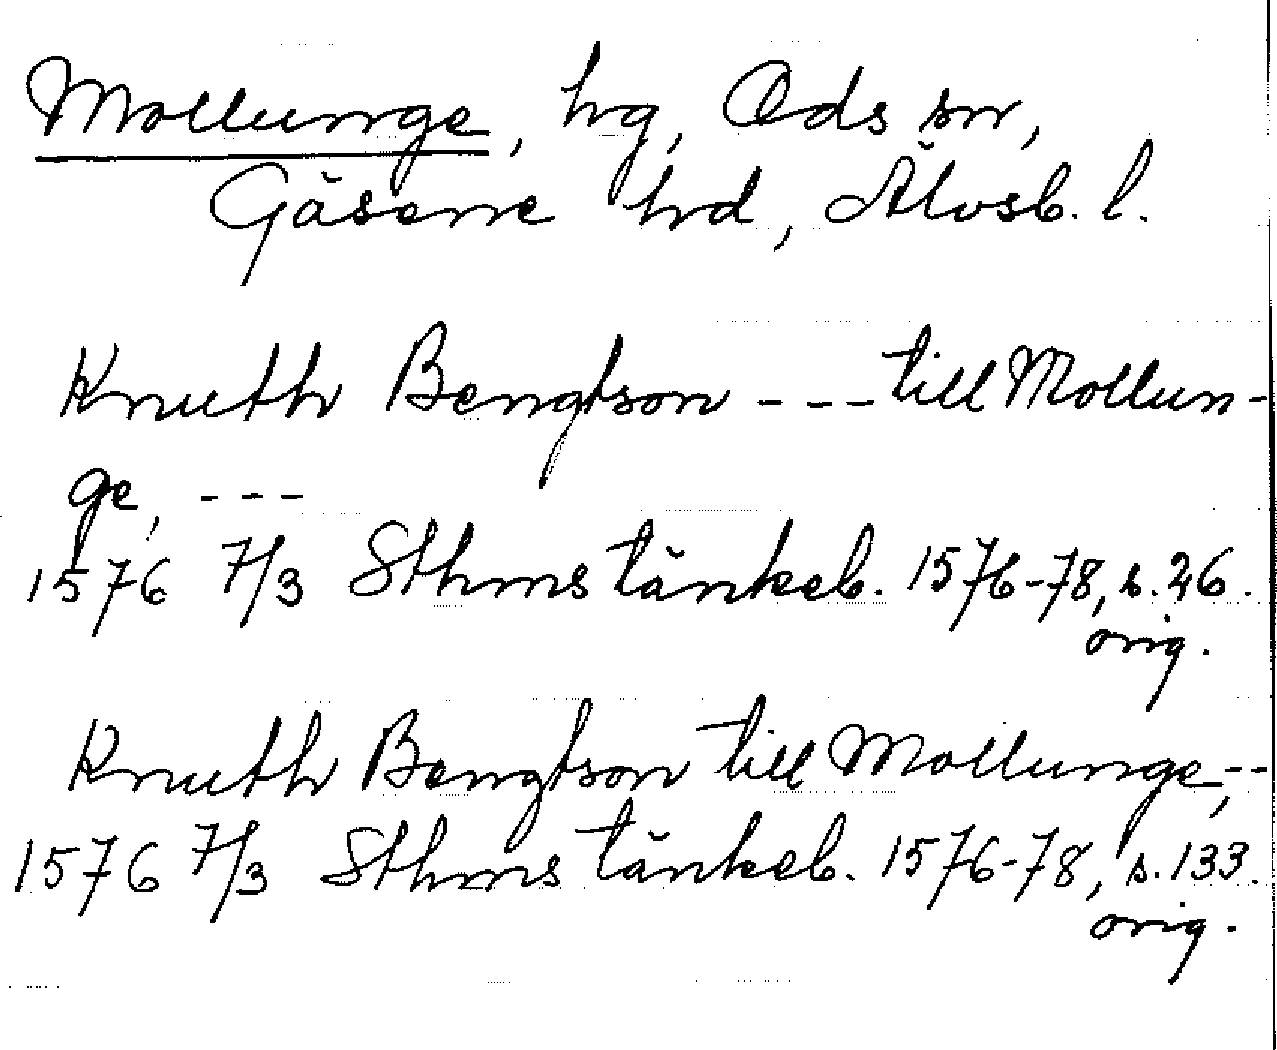 Mollunge, hg, Ods sn,
Gäsene hd, Älvsb. l.
Knuth Bengtson --- till Mollun-
ge, ---
1576 7/3 Sthms tänkeb. 1576-78, s. 26.
orig.
Knuth Bengtson till Mollunge, --
1576 7/3 Sthms tänkeb. 1576-78, s. 133.
orig.